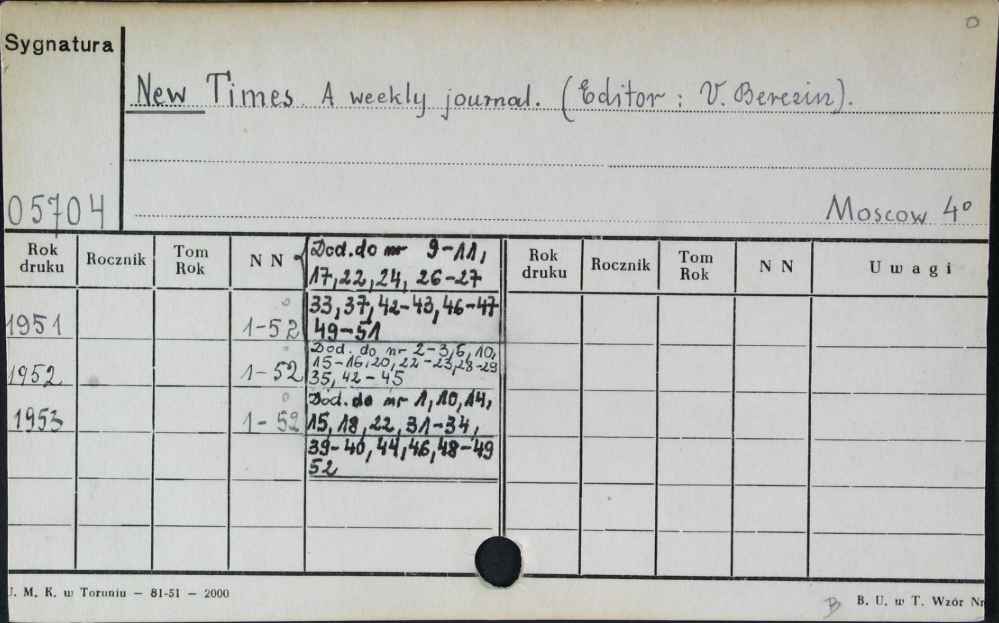 Sygnatura
New Times. A weekly journal. (Editor: V. Berezin).
05704
Moscow 4°
Rok druku Rocznik Tom Rok N N Dod. do nr 9-11, Rok druku Rocznik Tom Rok N N Uwagi
17, 22, 24, 26-27
33, 37, 42-43, 46-47
1951 1-52 49-51
Dod. do nr 2-3, 6, 10,
15-16, 20, 22-23, 28-29
1952 1-52 35, 42-45
Dod. do nr 1, 10, 14,
1953 1-52 15, 18, 22, 31-34,
39-40, 44, 46, 48-49
52
U. M. K. w Toruniu — 81-51 — 2000
B B. U. w T. Wzór Nr